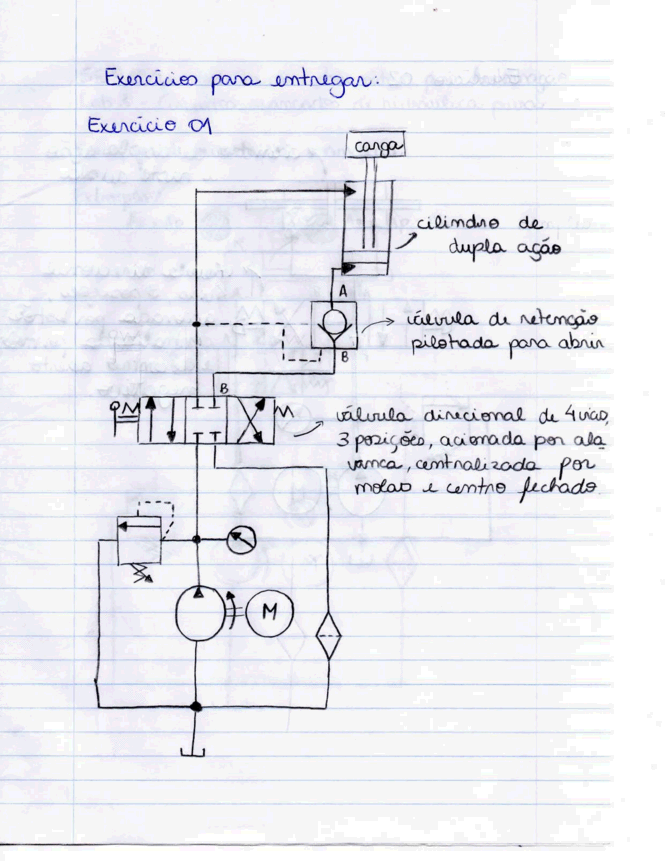 Exercícios para entregar:
Exercício 01
carga
cilindro de
dupla ação
A
válvula de retenção
pilotada para abrir
B
B
válvula direcional de 4 vias,
3 posições, acionada por ala
vanca, centralizada por
molas e centro fechado
M